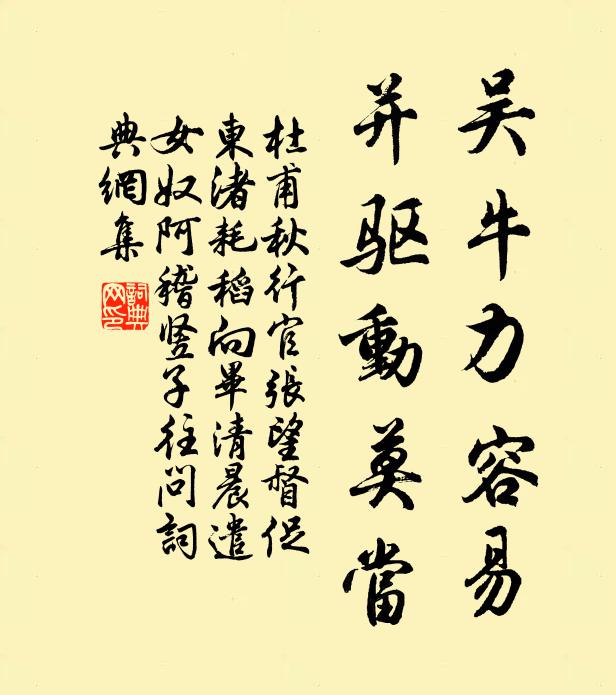 吴牛力容易
并驱動莫當
杜甫秋行官張望督促
東渚耗稻向畢清晨遣
女奴阿稽竖子往问詞
典網集
詞典
网印